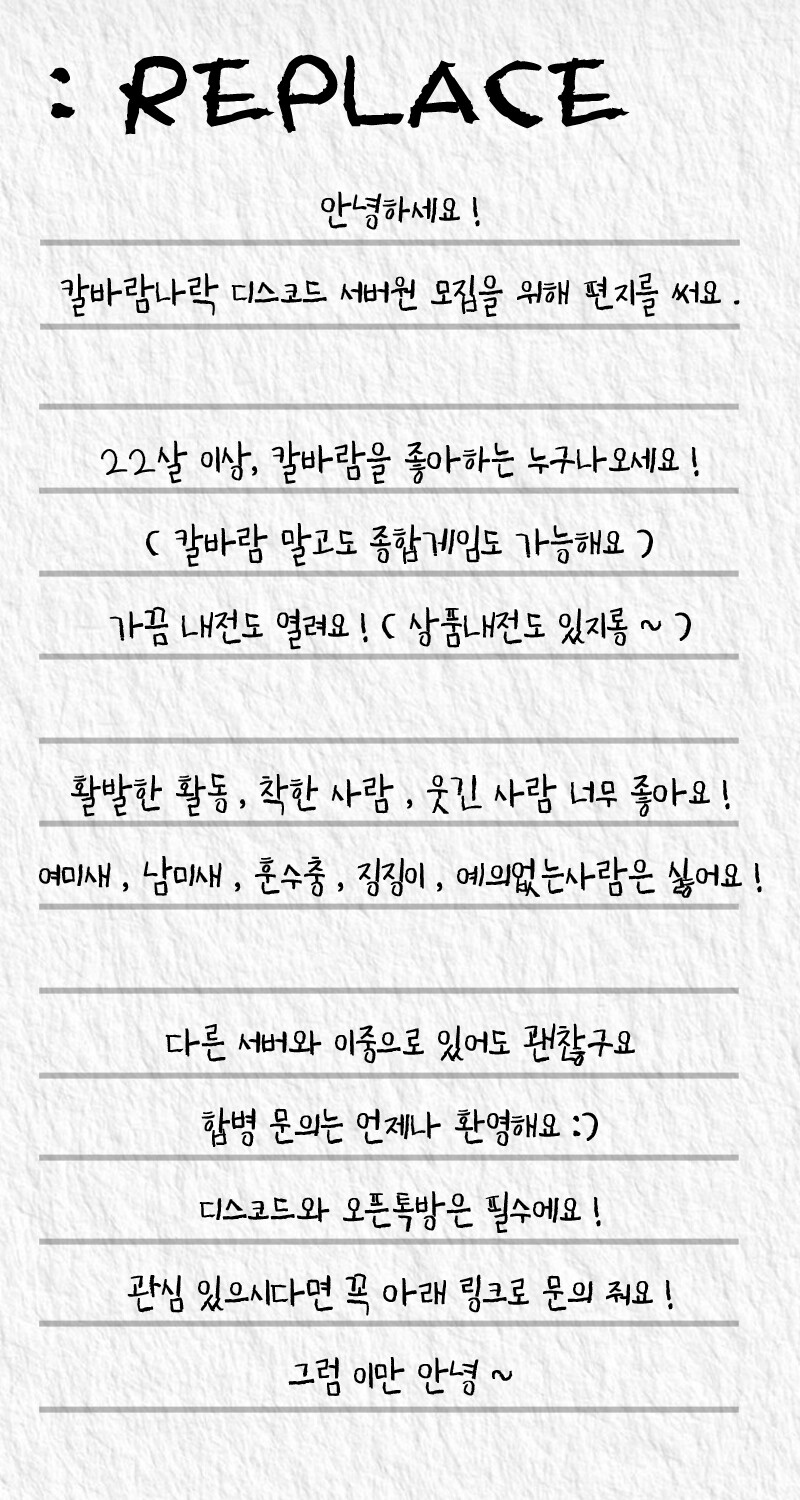 : REPLACE
안녕하세요 !
칼바람나락 디스코드 서버원 모집을 위해 편지를 써요 .
22살 이상, 칼바람을 좋아하는 누구나오세요 !
( 칼바람 말고도 종합게임도 가능해요 )
가끔 내전도 열려요 ! ( 상품내전도 있지롱 ~ )
활발한 활동 , 착한 사람 , 웃긴 사람 너무 좋아요 !
여미새 , 남미새 , 훈수충 , 징징이 , 예의없는사람은 싫어요 !
다른 서버와 이중으로 있어도 괜찮구요
합병 문의는 언제나 환영해요 :)
디스코드와 오픈톡방은 필수에요 !
관심 있으시다면 꼭 아래 링크로 문의 줘요 !
그럼 이만 안녕 ~